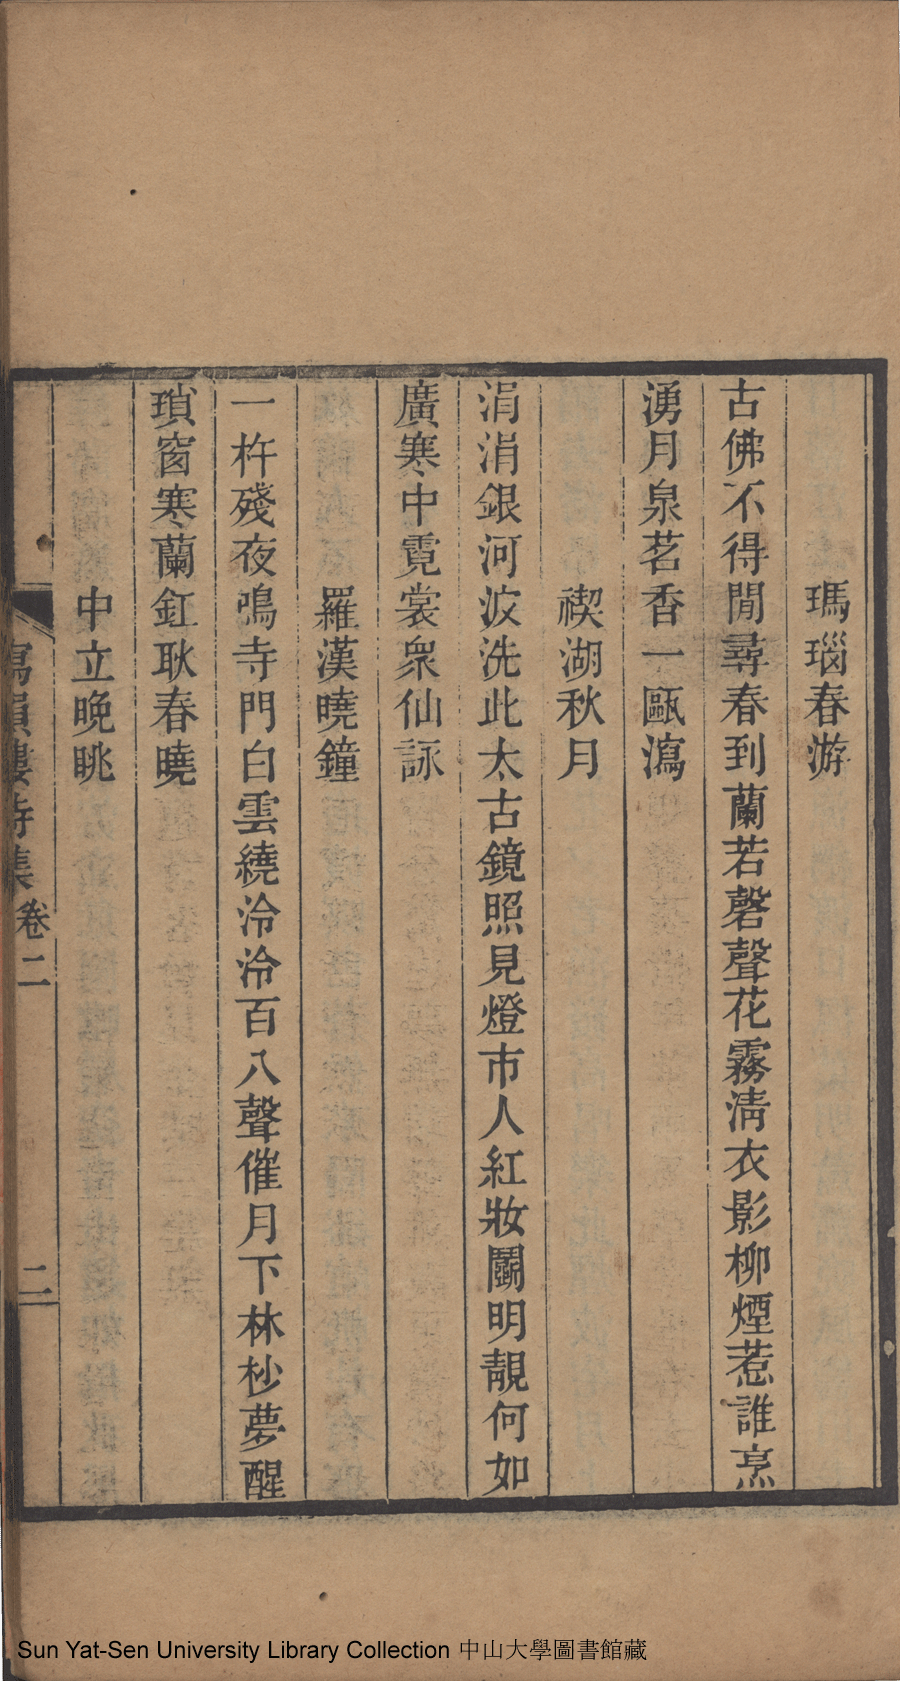 瑪瑙春游
古佛不得閒尋春到蘭若磬聲花霧淸衣影柳煙惹誰烹
湧月泉茗香一甌瀉
禊湖秋月
涓涓銀河波洗此太古鏡照見燈市人紅妝鬭明靚何如
廣寒中霓裳衆仙詠
羅漢曉鐘
一杵殘夜鳴寺門白雲繞泠泠百八聲催月下林杪夢醒
瑣窗寒蘭釭耿春曉
中立晚眺
寫韻樓詩集 卷二 二
Sun Yat-Sen University Library Collection 中山大學圖書館藏